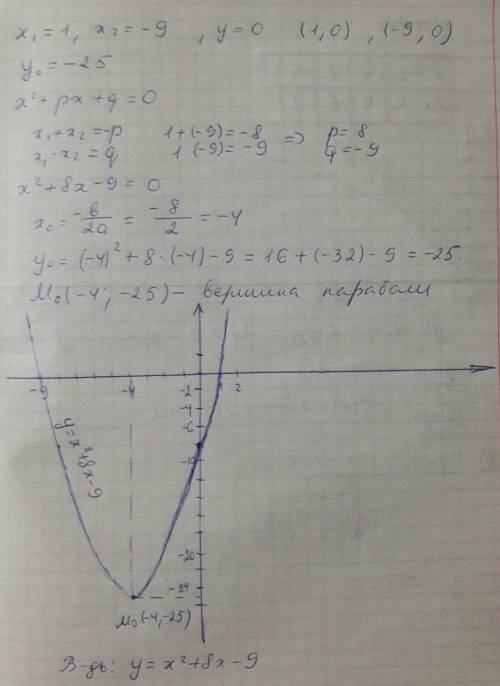 x₁ = 1, x₂ = -9 , y = 0 (1, 0) , (-9, 0)
y₀ = -25
x² + px + q = 0
x₁ + x₂ = -p 1 + (-9) = -8 => p = 8
x₁ · x₂ = q 1 · (-9) = -9 q = -9
x² + 8x - 9 = 0
x₀ = -b/2a = -8/2 = -4
y₀ = (-4)² + 8 · (-4) - 9 = 16 + (-32) - 9 = -25
M₀ (-4; -25) - вершина параболи
-9 -4 -2 2
-4
-6
-10
y = x² + 8x - 9
-20
-24
M₀ (-4, -25)
В-дь: y = x² + 8x - 9